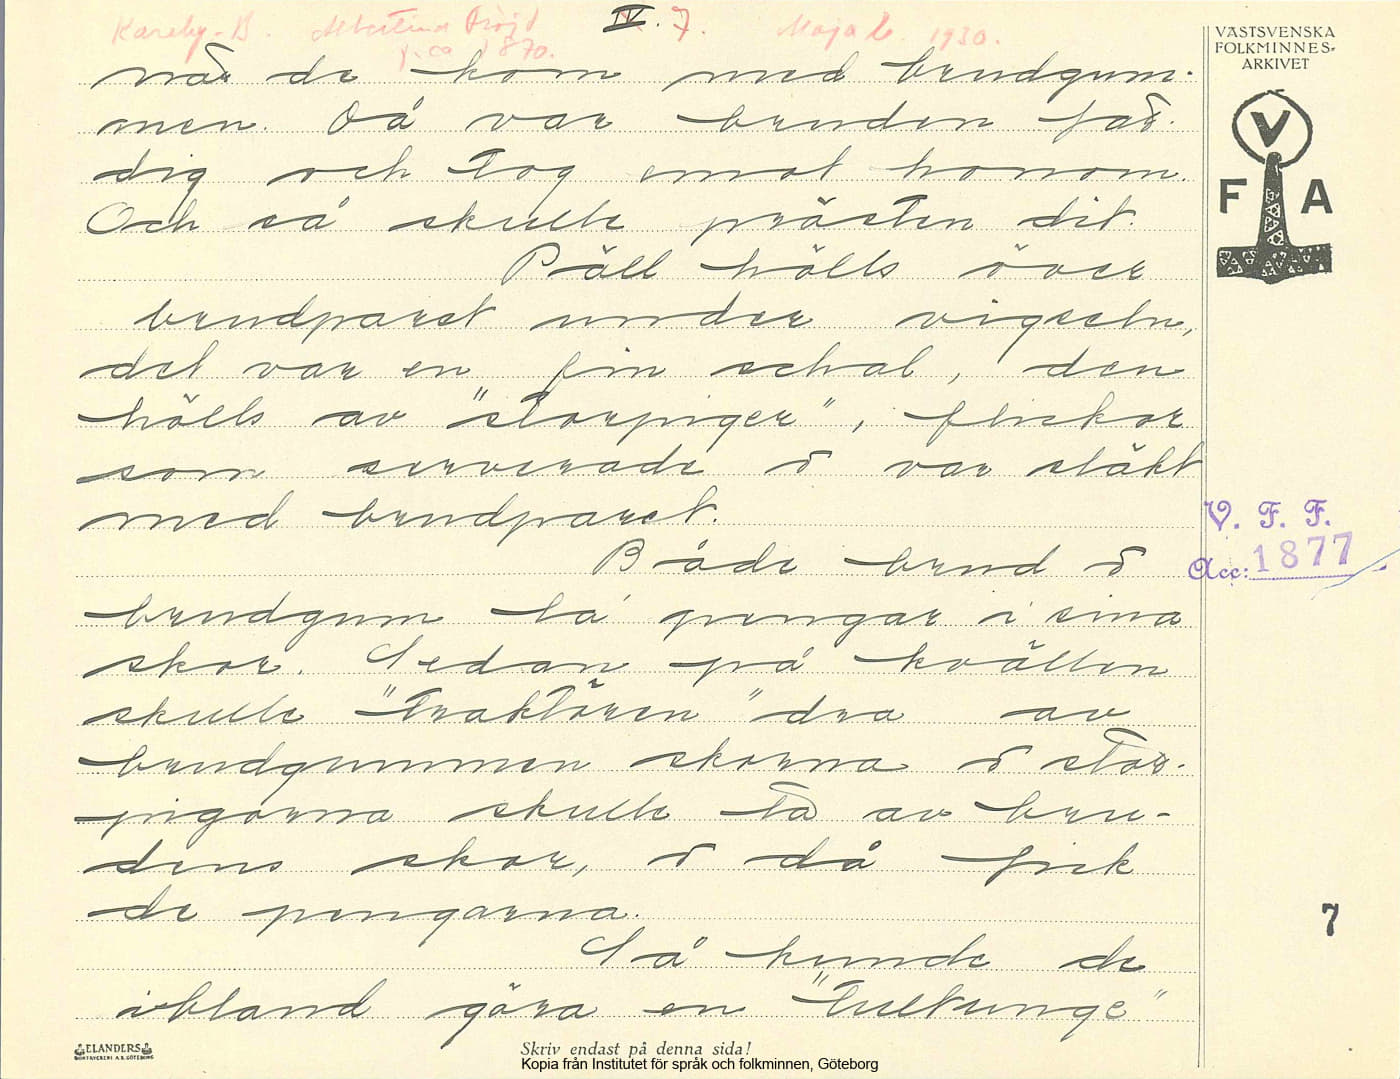 Kareby-B. Albertina Fröjd IV. 7. Maja E. 1930.
f. ca 1870.
VÄSTSVENSKA
FOLKMINNES-
ARKIVET
V
F A
när de kom med brudgum-
men. Då var bruden fär-
dig och tog emot honom.
Och så skulle prästen dit.
Päll hölls över
brudparet under vigseln,
det var en fin schal, den
hölls av "storpiger", flickor
som serverade o var släkt
med brudparet.
V. F. F.
Acc: 1877
Både brud o
brudgum la pengar i sina
skor. Sedan på kvällen
skulle "traktören" dra av
brudgummen skorna o stor-
pigorna skulle ta av bru-
dens skor, o då fick
de pengarna.
7
Så kunde de
ibland göra en "tultunge"
ELANDERS
BOKTRYCKERI A.B. GÖTEBORG
Skriv endast på denna sida!
Kopia från Institutet för språk och folkminnen, Göteborg